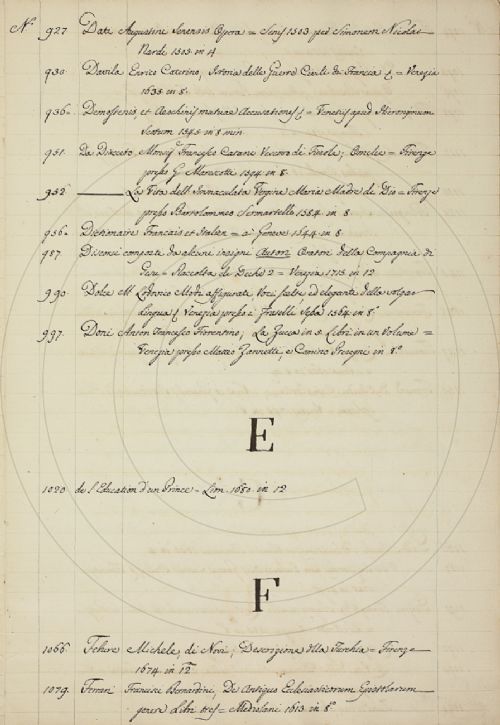 N.° 927 Dati Augustini Senensis Opera = Senis 1503 per Simonem Nicolai
Nardi 1503 in 4.
930 Davila Enrico Caterino, Istoria delle Guerre Civili di Francia = Venezia
1638 in 8.
936 Demostenis, et Aeschinis mutuae Accusationes = Venetiis apud Hieronimum
Scotum 1545 in 8 min.
951. Da Diacceto, Monsig.r Francesco Catani Vescovo di Fiesole; Omelie = Firenze
presso G. Marescotti 1594 in 8.
952 La Vita dell'Immaculata Vergine Maria Madre di Dio = Firenze
presso Bartolommeo Sermartelli 1584 in 8.
956 Dictionaire Francais et Italien = a Geneve 1644 in 8
987 Discorsi composti da alcuni insigni Autori Oratori della Compagnia di
Gesu = Raccolta di Deche 2 = Venezia 1713 in 12
990 Dolce M. Lodovico Modi affigurati, Voci scelte, ed eleganti della volgar
lingua Venezia presso i Fratelli Sessa 1564 in 8
997. Doni Anton Francesco Fiorentino; La Zucca in 5 Libri in un Volume =
Venezia presso Matteo Zannetti, e Comino Presegni in 8.°
E
1020 de l'Education d'un Prince = 1650 in 12
F
1066 Febure Michele, di Novi; Descrizione della Turchia = Firenze
1674 in 12
1079. Ferrari Francisci Bernardini, De Antiquo Eclesiasticorum Epistolarum
genere Libri tres = Mediolani 1613 in 8.°